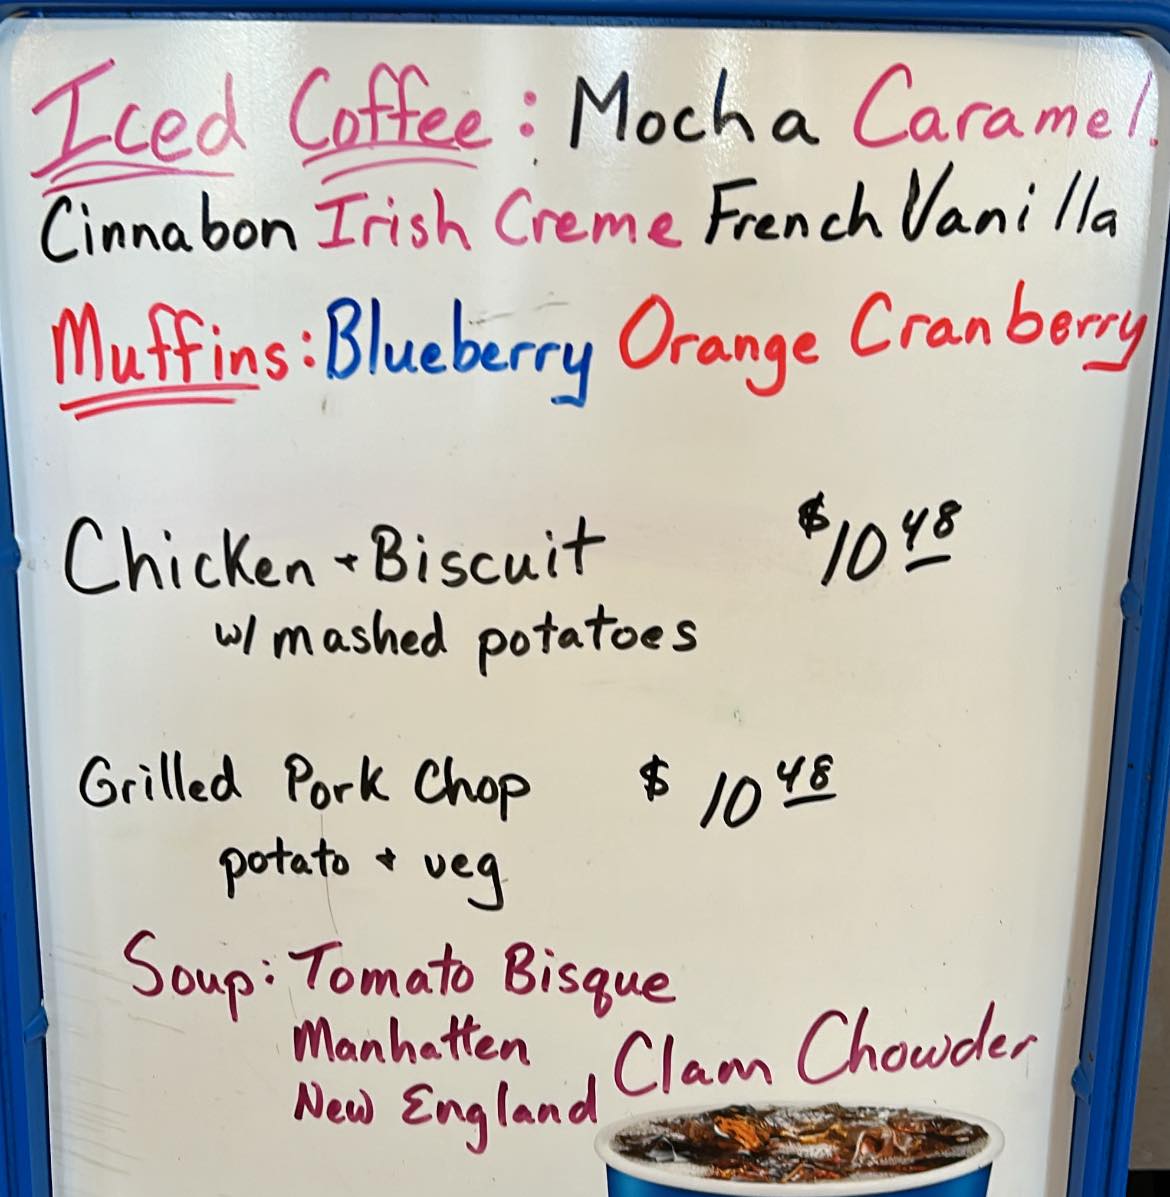 Iced Coffee: Mocha Caramel
Cinnabon Irish Creme French Vanilla
Muffins: Blueberry Orange Cranberry
Chicken + Biscuit $10 48
w/ mashed potatoes
Grilled Pork Chop $ 10 48
potato + veg
Soup: Tomato Bisque
Manhatten
Clam Chowder
New England